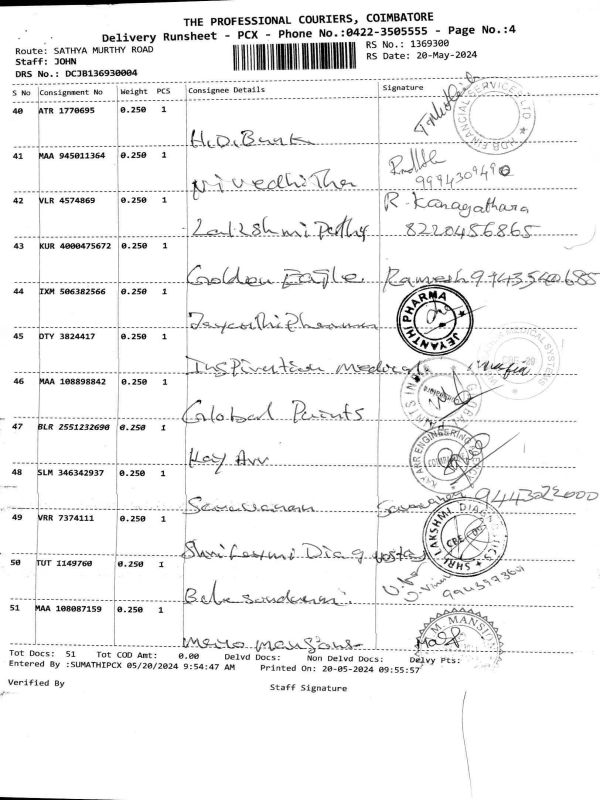 THE PROFESSIONAL COURIERS, COIMBATORE
Delivery Runsheet - PCX - Phone No.:0422-3505555 - Page No.:4
Route: SATHYA MURTHY ROAD RS No.: 1369300
Staff: JOHN RS Date: 20-May-2024
DRS No.: DCJB136930004
S No Consignment No Weight PCS Consignee Details Signature
40 ATR 1770695 0.250 1
H.D.Bank
HDB FINANCIAL SERVICES LTD
41 MAA 945011364 0.250 1
Nivedhitha 9994309490
42 VLR 4574869 0.250 1 R. Kanagathara
Lakshmi Pathy 8220456865
43 KUR 4000475672 0.250 1
Golden Eagle Ramesh 9743540685
44 IXM 506382566 0.250 1
Jeyanthi Pharma JEYANTHI PHARMA
45 DTY 3824417 0.250 1
Inspiration medical
46 MAA 108898842 0.250 1
Global Paints
47 BLR 2551232690 0.250 1
Kay Arr KAY ARR ENGINEERING AGENCY
48 SLM 346342937 0.250 1
Saravanan Saravanan 9443022000
49 VRR 7374111 0.250 1
Shri Laxmi Diagnostic SHRI LAKSHMI DIAGNOSTICS CBE
50 TUT 1149760 0.250 1
51 MAA 108087159 0.250 1
M.M. MANSION
Tot Docs: 51 Tot COD Amt: 0.00 Delvd Docs: Non Delvd Docs: Delvy Pts:
Entered By :SUMATHIPCX 05/20/2024 9:54:47 AM Printed On: 20-05-2024 09:55:57
Verified By Staff Signature